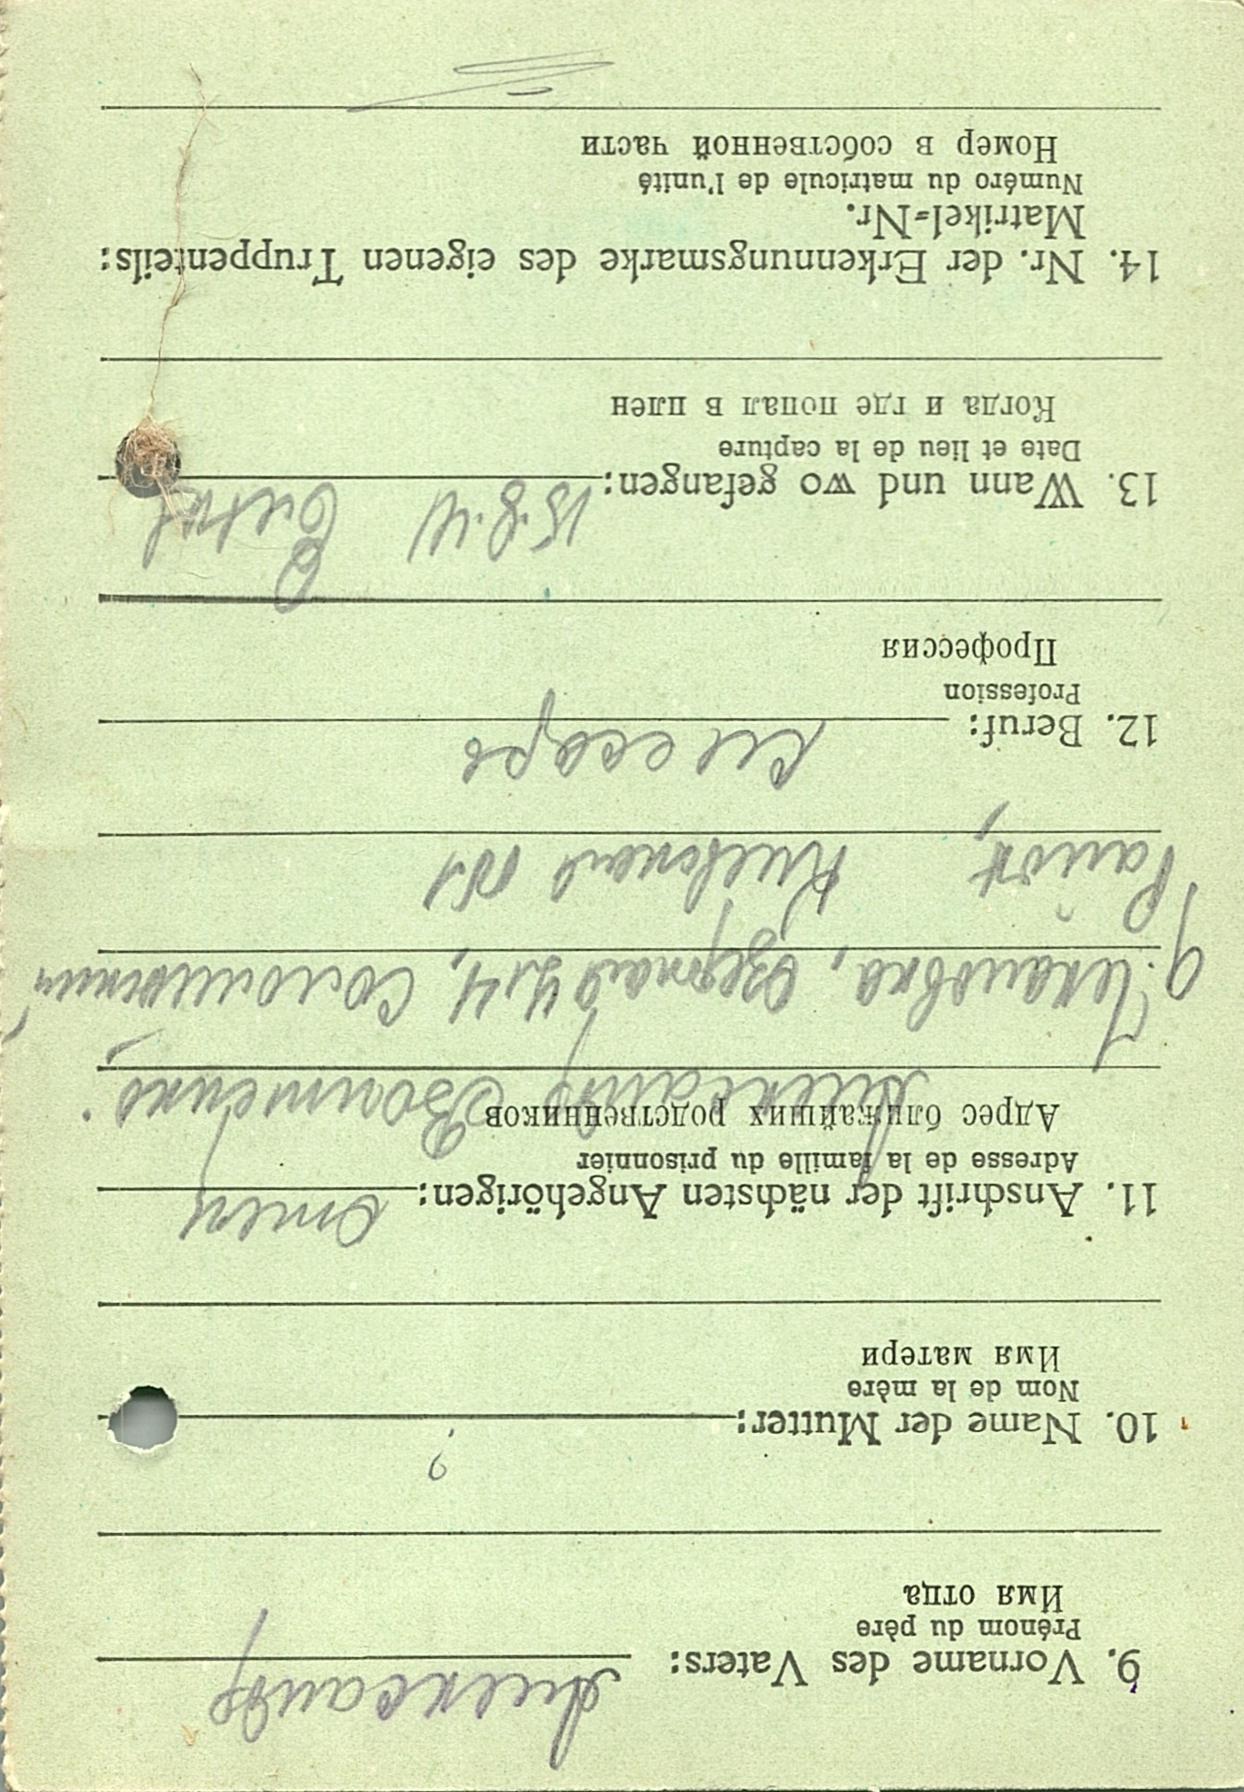 9. Vorname des Vaters: Александр
Prénom du père
Имя отца
10. Name der Mutter: ?
Nom de la mère
Имя матери
11. Anschrift der nächsten Angehörigen: Отец
Adresse de la famille du prisonnier
Адрес ближайших родственников
Александр
д. Чекаловка, Озерная
Район, Киевская обл
12. Beruf: слесарь
Profession
Профессия
13. Wann und wo gefangen:
Date et lieu de la capture
Когда и где попал в плен
14. Nr. der Erkennungsmarke des eigenen Truppenteils:
Matrikel=Nr.
Numéro du matricule de l'unité
Номер в собственной части